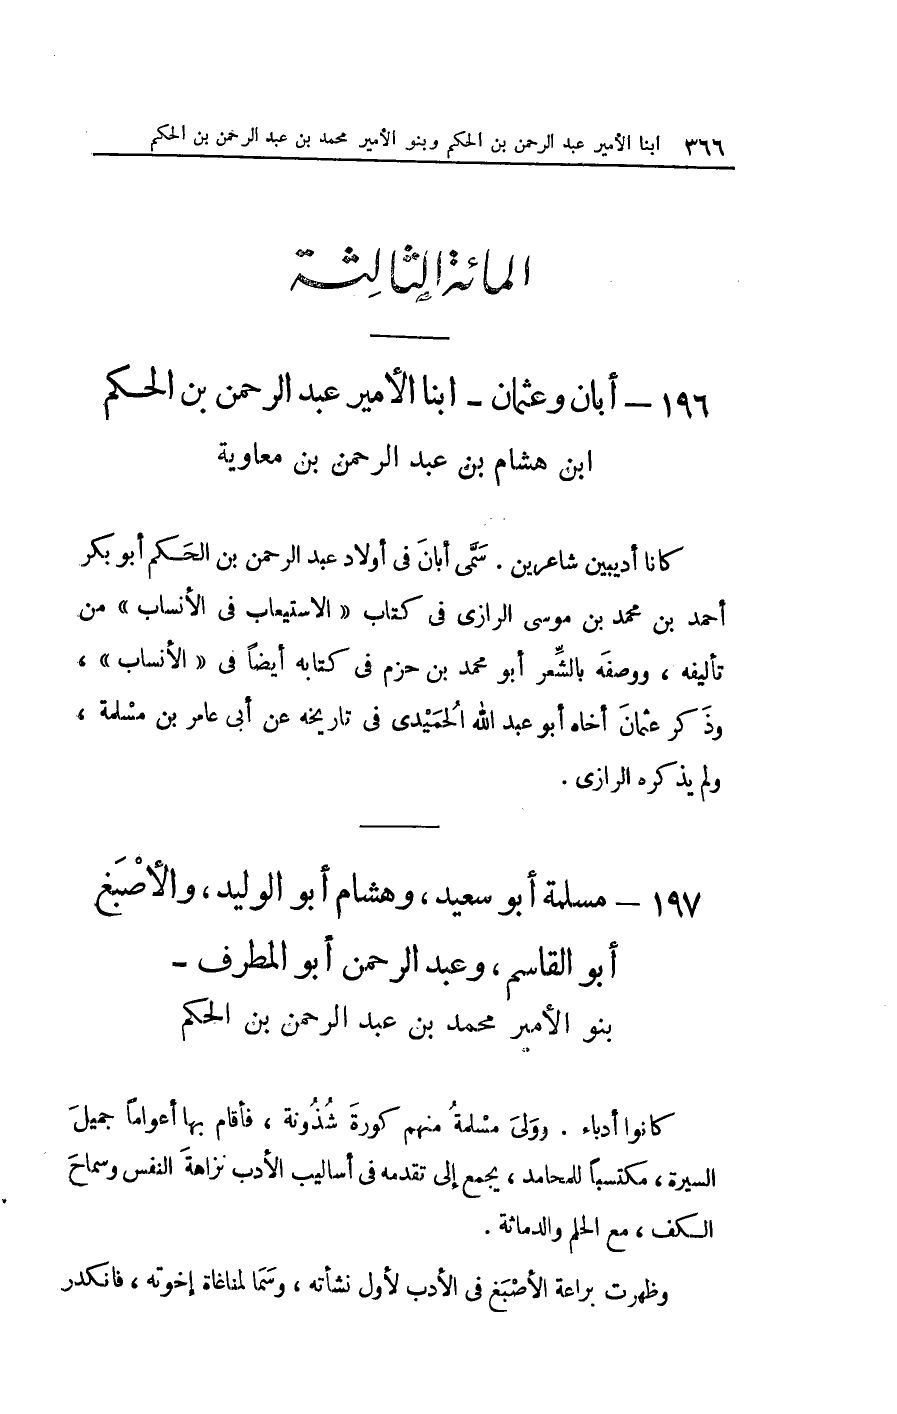 ٣٦٦ ابنا الأمير عبد الرحمن بن الحكم وبنو الأمير محمد بن عبد الرحمن بن الحكم
المائة الثالثة
١٩٦ – أبان وعثمان – ابنا الأمير عبد الرحمن بن الحكم
ابن هشام بن عبد الرحمن بن معاوية
كانا أديبين شاعرين . سَمَّى أبانَ فى أولاد عبد الرحمن بن الحَكم أبو بكر
أحمد بن محمد بن موسى الرازى فى كتاب « الاستيعاب فى الأنساب » من
تأليفه ، ووصفَه بالشِّعر أبو محمد بن حزم فى كتابه أيضاً فى « الأنساب » ،
وذَكر عثمانَ أخاه أبو عبد الله الحُمَيْدى فى تاريخه عن أبى عامر بن مسْلمة ،
ولم يذكره الرازى .
١٩٧ – مسلمة أبو سعيد ، وهشام أبو الوليد ، والأصْبَغ
أبو القاسم ، وعبد الرحمن أبو المطرف –
بنو الأمير محمد بن عبد الرحمن بن الحكم
كانوا أدباء . ووَلىَ مسْلمةُ منهم كورةَ شُذُونة ، فأقام بها أعواماً جميلَ
السيرة ، مكتسباً للمحامد ، يجمع إلى تقدمه فى أساليب الأدب نزاهةَ النفس وسماحَ
الكف ، مع الحلم والدماثة .
وظهرت براعة الأصْبَغ فى الأدب لأول نشأته ، وسَمَا لمناغاة إخوته ، فانكدر